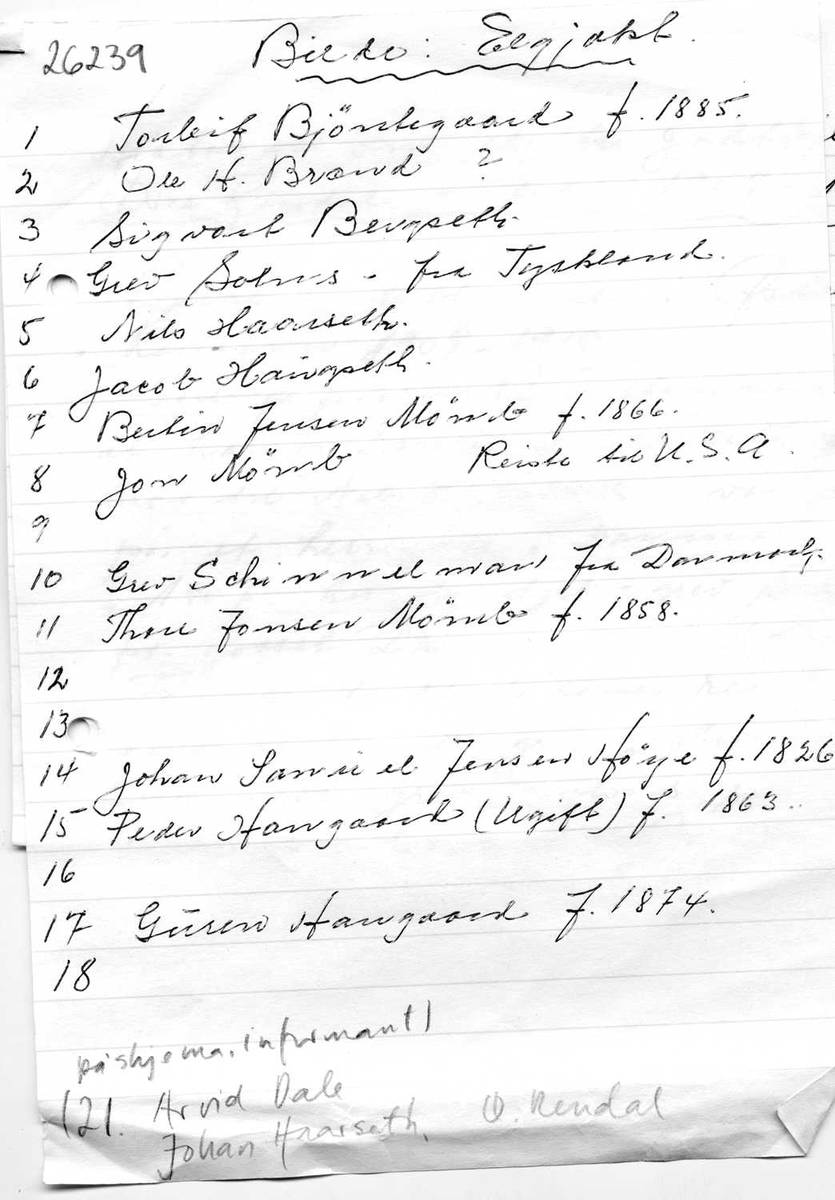 26239 Bilde: Elgjakt.
1 Torleif Bjöntegaard f. 1885.
2 Ole H. Brænd ?
3 Sigvart Bergseth.
4 Grev Solms - fra Tyskland.
5 Nils Haarseth.
6 Jacob Haugseth.
7 Bertin Jensen Mömb f. 1866.
8 Jon Mömb Reiste til U.S.A.
9
10 Grev Schimmelman fra Danmark.
11 Thore Jonsen Mömb f. 1858.
12
13
14 Johan Samuel Jensen Höye f. 1826
15 Peder Haugaard (Ugift) f. 1863.
16
17 Guren Haugaard f. 1874.
18
på skjema, informant)
(2). Arvid Dale
Johan Haarseth, Ø. Rendal